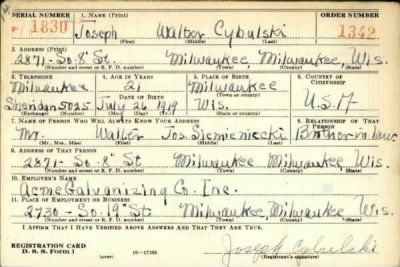 SERIAL NUMBER 1. NAME (Print) ORDER NUMBER
P 1830 Joseph Walter Cybulski 1342
(First) (Middle) (Last)
2. ADDRESS (Print)
2871-So. 8" St. Milwaukee, Milwaukee, Wis.
(Number and street or R. F. D. number) (Town) (County) (State)
3. TELEPHONE 4. AGE IN YEARS 5. PLACE OF BIRTH 6. COUNTRY OF CITIZENSHIP
Milwaukee 21 Milwaukee
DATE OF BIRTH (Town or county)
Sheridan 5025 July 26 1919 Wis. U.S.A
7. NAME OF PERSON WHO WILL ALWAYS KNOW YOUR ADDRESS 8. RELATIONSHIP OF THAT PERSON
Mr. Walter Jos. Siemieniecki Brother in Law
(Mr., Mrs., Miss) (First) (Middle) (Last)
9. ADDRESS OF THAT PERSON
2871-So. 8" St Milwaukee, Milwaukee, Wis.
(Number and street or R. F. D. number) (Town) (County) (State)
10. EMPLOYER'S NAME
Acme Galvanizing Co. Inc.
11. PLACE OF EMPLOYMENT OR BUSINESS
2730-So. 19" St Milwaukee, Milwaukee, Wis
(Number and street or R. F. D. number) (Town) (County) (State)
I AFFIRM THAT I HAVE VERIFIED ABOVE ANSWERS AND THAT THEY ARE TRUE.
REGISTRATION CARD
D. S. S. Form 1 16-17105 Joseph Cybulski
(Registrant's signature)